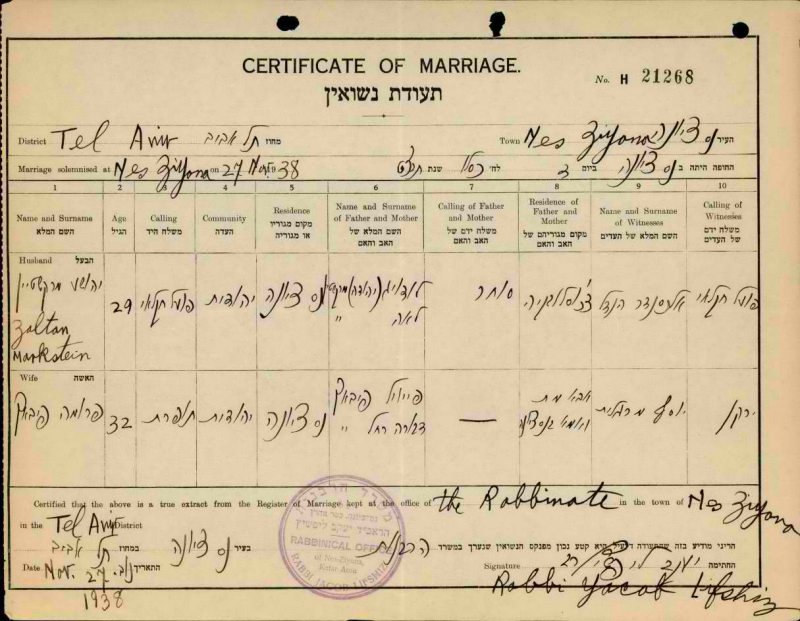 CERTIFICATE OF MARRIAGE.
No. H 21268
תעודת נשואין
District Tel Aviv תל אביב מחוז Town Nes Ziyona נס ציונה העיר
Marriage solemnised at Nes Ziyona on 27 Nov. 1938 החופה היתה ב נס ציונה ביום ד לח' כסלו שנת תרצ"ט
1 2 3 4 5 6 7 8 9 10
Name and Surname השם המלא
Age הגיל
Calling משלח היד
Community העדה
Residence מקום מגוריו או מגוריה
Name and Surname of Father and Mother השם המלא של האב והאם
Calling of Father and Mother משלח ידם של האב והאם
Residence of Father and Mother מקום מגוריהם של האב והאם
Name and Surname of Witnesses השם המלא של העדים
Calling of Witnesses משלח ידם של העדים
Husband הבעל
יהושע מרקשטיין
Zoltan
Markstein
29
פועל חקלאי
יהודית
נס ציונה
לודויג (יהודה)
לאה "
סוחר
צ'כוסלובקיה
אלכסנדר הנדל
פועל חקלאי
Wife האשה
פרומה
32
תופרת
יהודית
נס ציונה
דבורה רחל "
—
אבא מת
ואמא בנס ציונה
יוסף מרגלית
ירקן
Certified that the above is a true extract from the Register of Marriage kept at the office of the Rabbinate in the town of Nes Ziyona
in the Tel Aviv District
הריני מודיע בזה שהתעודה דלעיל היא קטע נכון מפנקס הנשואין שנערך במשרד הרבנות
בעיר נס ציונה במחוז תל אביב
Date Nov. 27. נוב. התאריך
1938
החתימה
Signature Rabbi Yacob Lifshiz
משרד הרבנות
הרב יעקב ליפשיץ
RABBINICAL OFFICE
of Nes-Ziyona,
RABBI JACOB LIFSHIZ